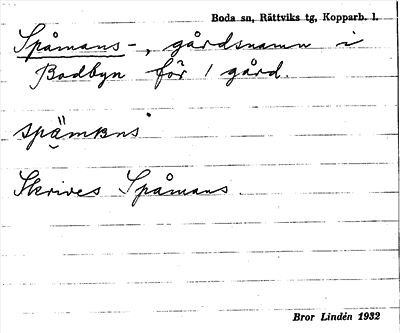 Boda sn, Rättviks tg, Kopparb. l.
Spåmans-, gårdsnamn i
Bodbyn för 1 gård.
Skrives Spåmans.
Bror Lindén 1932